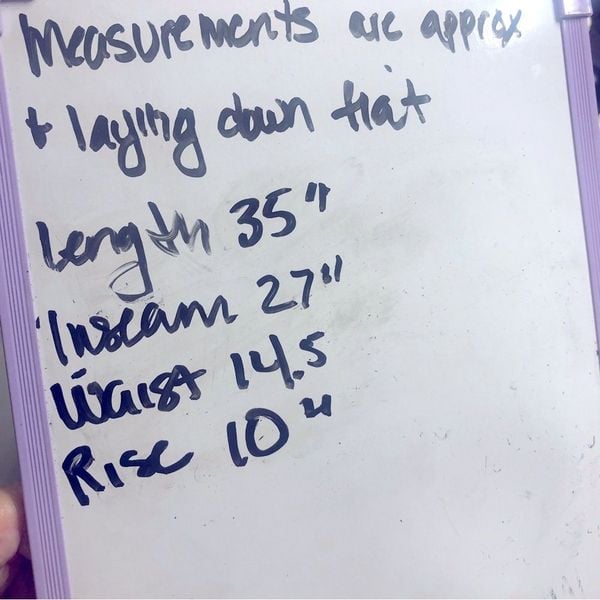 Measurements are approx
+ laying down flat
Length 35"
Inseam 27"
Waist 14.5
Rise 10"